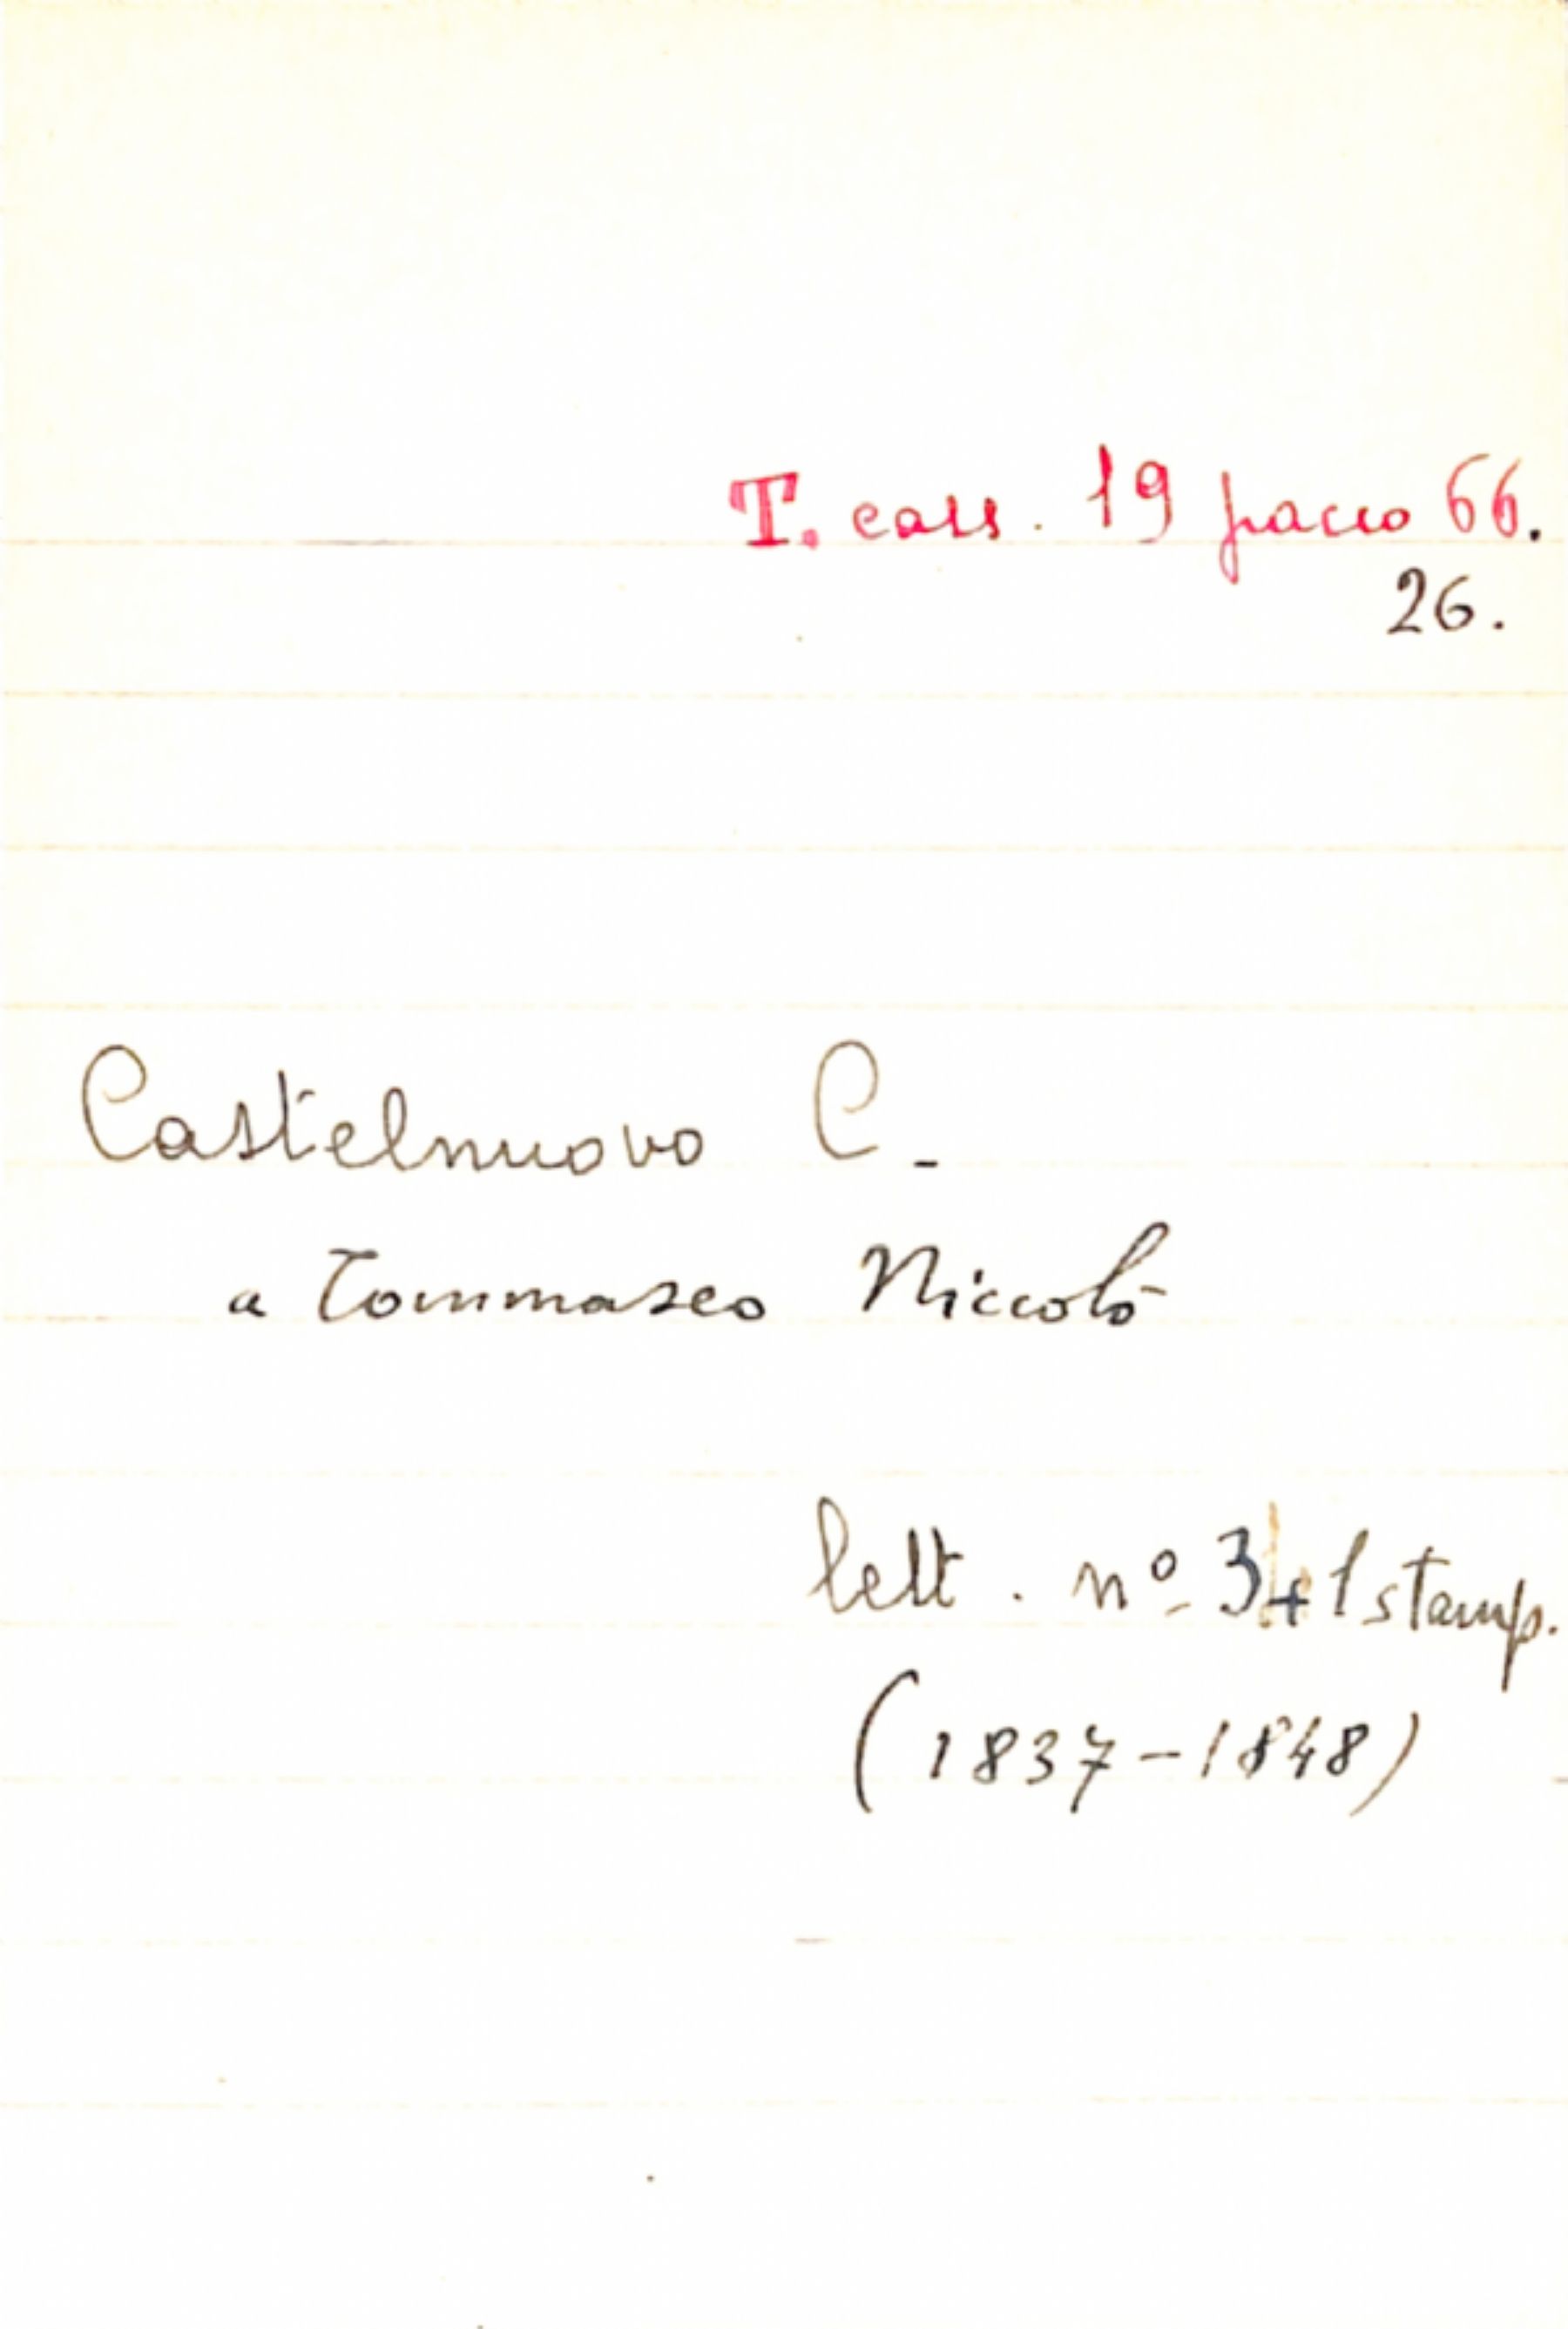 T. cass. 19 pacco 66.
26.
Castelnuovo C.
a Tommaseo Niccolò
lett. nº 3+1 stamp.
(1837-1848)